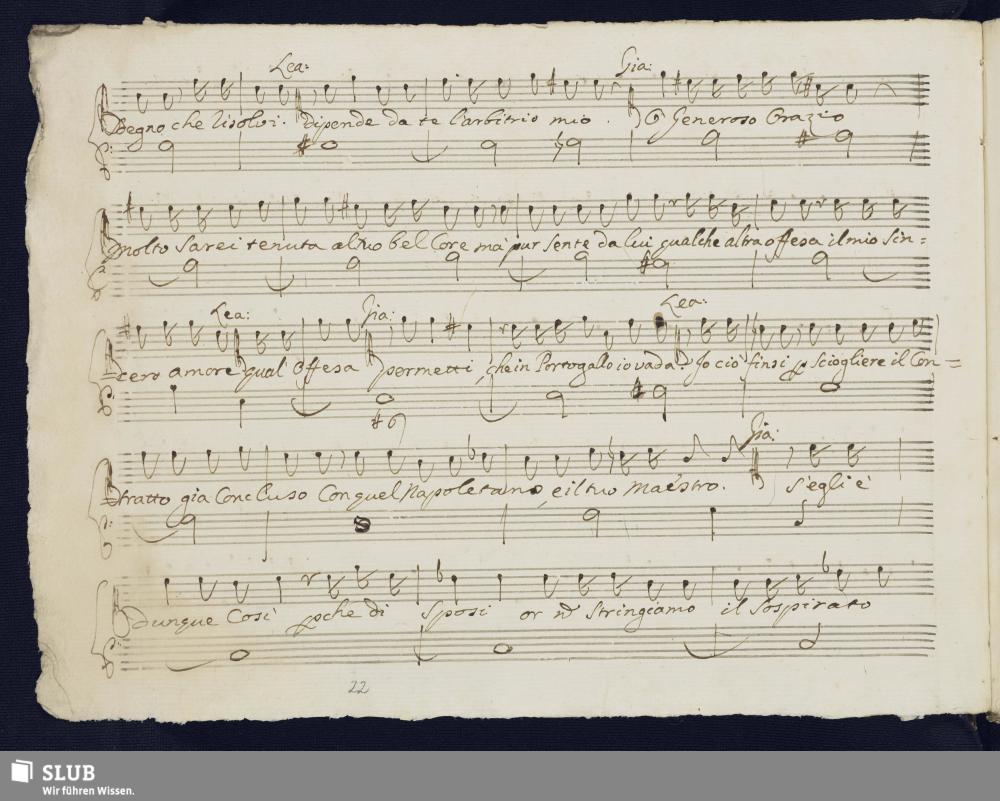 Lea: Gia:
Degno che risolvi. dipende da te l'arbitrio mio. Generoso Orazio
molto sarei tenuta al tuo bel Core ma pur sente da lui qualche altra offesa il mio sin=
Lea: Gia: Lea:
cero amore qual offesa permetti, che in Portogallo io vada? Io ciò finsi p sciogliere il Con=
#6
Gia:
tratto già Concluso Con quel Napoletano, e il tuo Maestro. s'egli è
dunque Così pche di sposi or nō stringiamo il sospirato
22
SLUB
Wir führen Wissen.